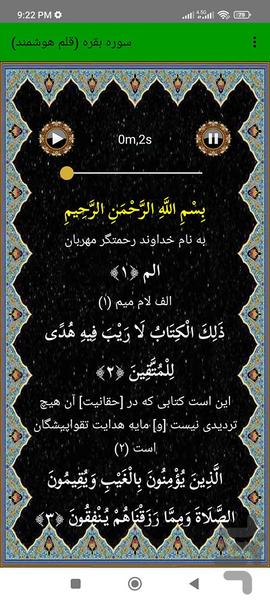 9:22 PM
سوره بقره (قلم هوشمند)
0m,2s
بِسْمِ اللَّهِ الرَّحْمَنِ الرَّحِيمِ
به نام خداوند رحمتگر مهربان
الم ﴿۱﴾
الف لام میم (۱)
ذَلِكَ الْكِتَابُ لَا رَيْبَ فِيهِ هُدًى
لِلْمُتَّقِينَ ﴿۲﴾
این است کتابی که در [حقانیت] آن هیچ
تردیدی نیست [و] مایه هدایت تقواپیشگان
است (۲)
الَّذِينَ يُؤْمِنُونَ بِالْغَيْبِ وَيُقِيمُونَ
الصَّلَاةَ وَمِمَّا رَزَقْنَاهُمْ يُنْفِقُونَ ﴿۳﴾